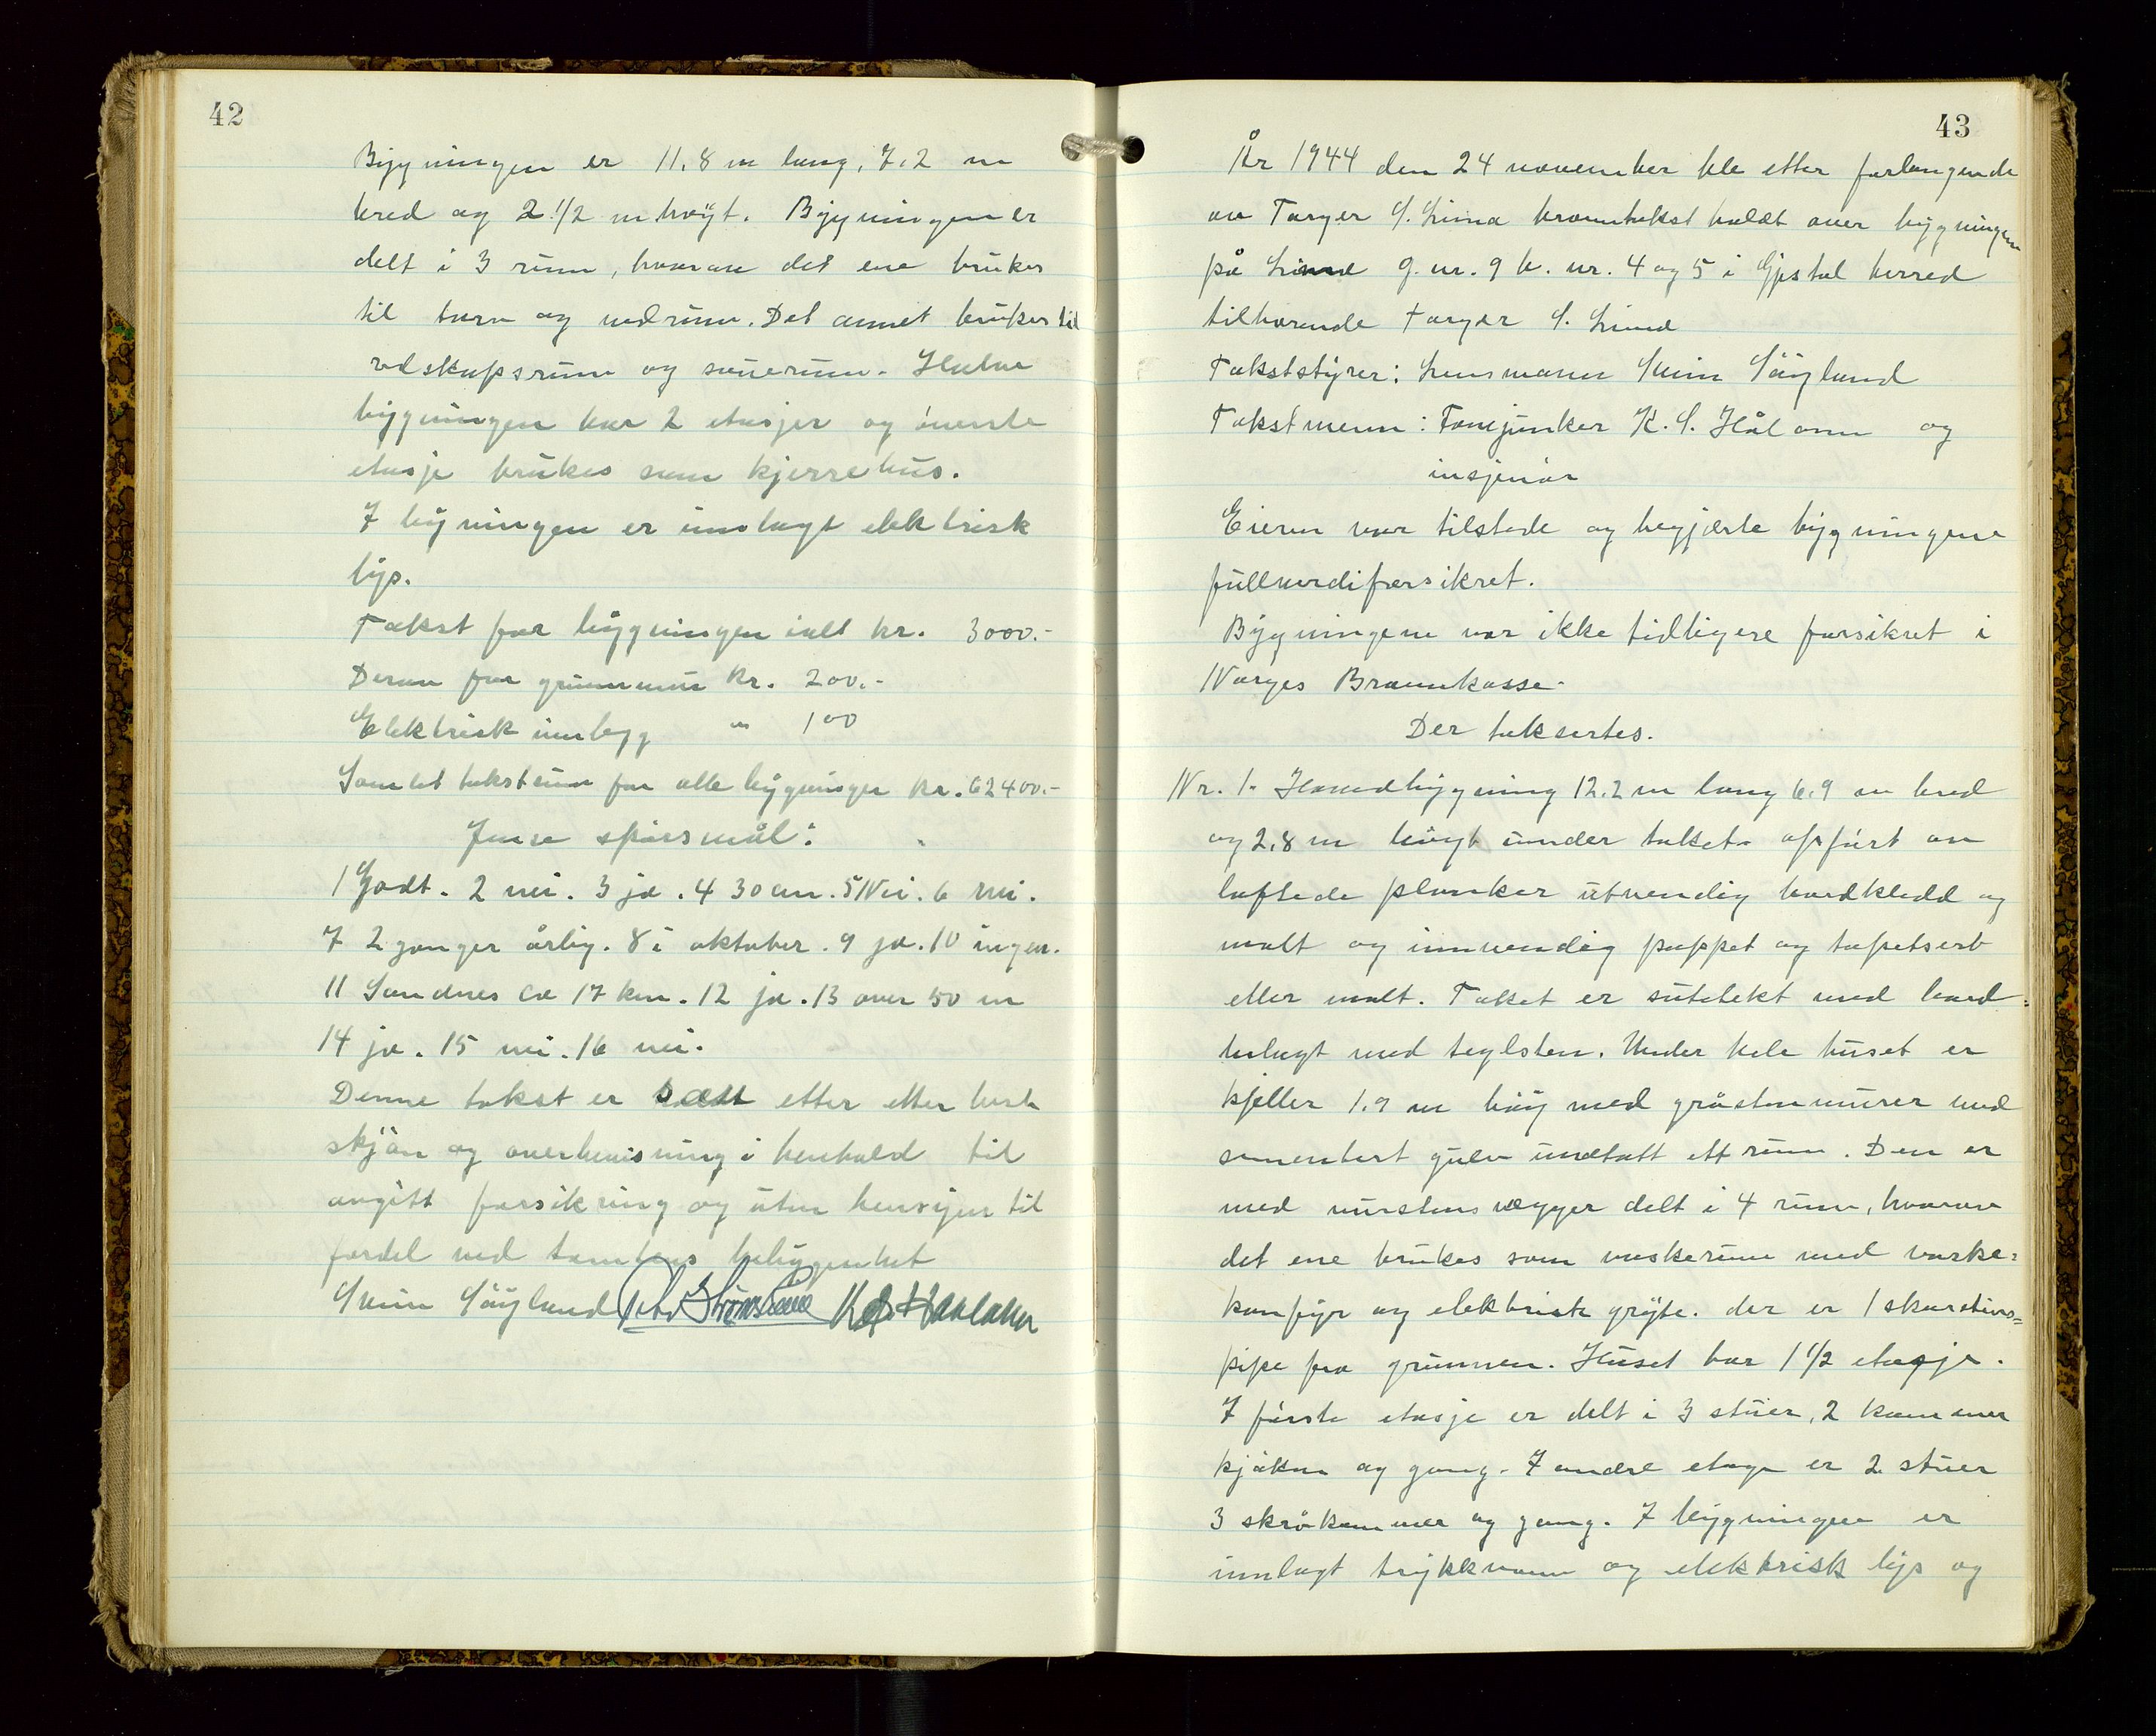 42
Bygningen er 11,8 m lang, 7,2 m
bred og 2 1/2 m høyt. Bygningen er
delt i 3 rum, hvorav det ene brukes
til torv og vedrum. Det annet brukes til
redskapsrum og sauerum. Halve
bygningen har 2 etasjer og øverste
etasje brukes som kjerrehus.
I bygningen er innlagt elektrisk
lys.
Takst for bygningen ialt kr. 3000.-
Derav for grunnmur kr. 200.-
Elektrisk innlegg " 100
Samlet takstsum for alle bygninger kr. 62400.-
Jmse spørsmål:
1 Godt. 2 nei. 3 ja. 4 30 cm. 5 Nei. 6 nei.
7 2 ganger årlig. 8 i oktober. 9 ja. 10 ingen.
11 Sandnes ca 17 km. 12 ja. 13 over 50 m
14 ja. 15 nei. 16 nei.
Denne takst er satt etter etter beste
skjøn og overbevisning i henhold til
avgitt forsikring og uten hensyn til
fordel ved tomtens beliggenhet
Svein Søyland Peder Strømstad K S Haaland
43
År 1944 den 24 november ble etter forlangende
av Torger S. Lima branntakst holdt over bygningene
på Lima g. nr. 9 b. nr. 4 og 5 i Gjestal herred
tilhørende Torger S. Lima
Takststyrer: Lensmann Svein Søyland
Takstmenn: Fanejunker K. S. Håland og
insjeniør
Eieren var tilstede og begjærte bygningene
fullverdiforsikret.
Bygningene var ikke tidligere forsikret i
Norges Brannkasse.
Der taksertes.
Nr. 1. Hovedbygning 12.2 m lang 6,9 m bred
og 2,8 m høyt under taket. oppført av
laftede planker utvendig bordkledd og
malt og innvendig pappet og tapetsert
eller malt. Taket er sutekt med bord
belagt med teglsten. Under hele huset er
kjeller 1.9 m høy med gråstenmurer med
sementert gulv undtatt ett rum. Den er
med murstens vegger delt i 4 rum, hvorav
det ene brukes som vaskerum med vaske=
komfyr og elektrisk gryte. der er 1 skorstens=
pipe fra grunnen. Huset har 1 1/2 etasje.
I første etasje er delt i 3 stuer, 2 kammer
kjøken og gang. I andre etage er 2 stuer
3 skråkammer og gang. I bygningen er
innlagt trykkvann og elektrisk lys og